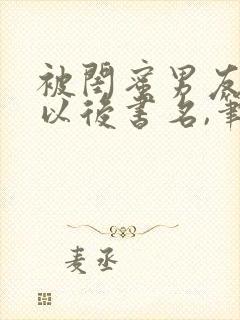 被閨蜜男友
以後書名,筆
麦丞